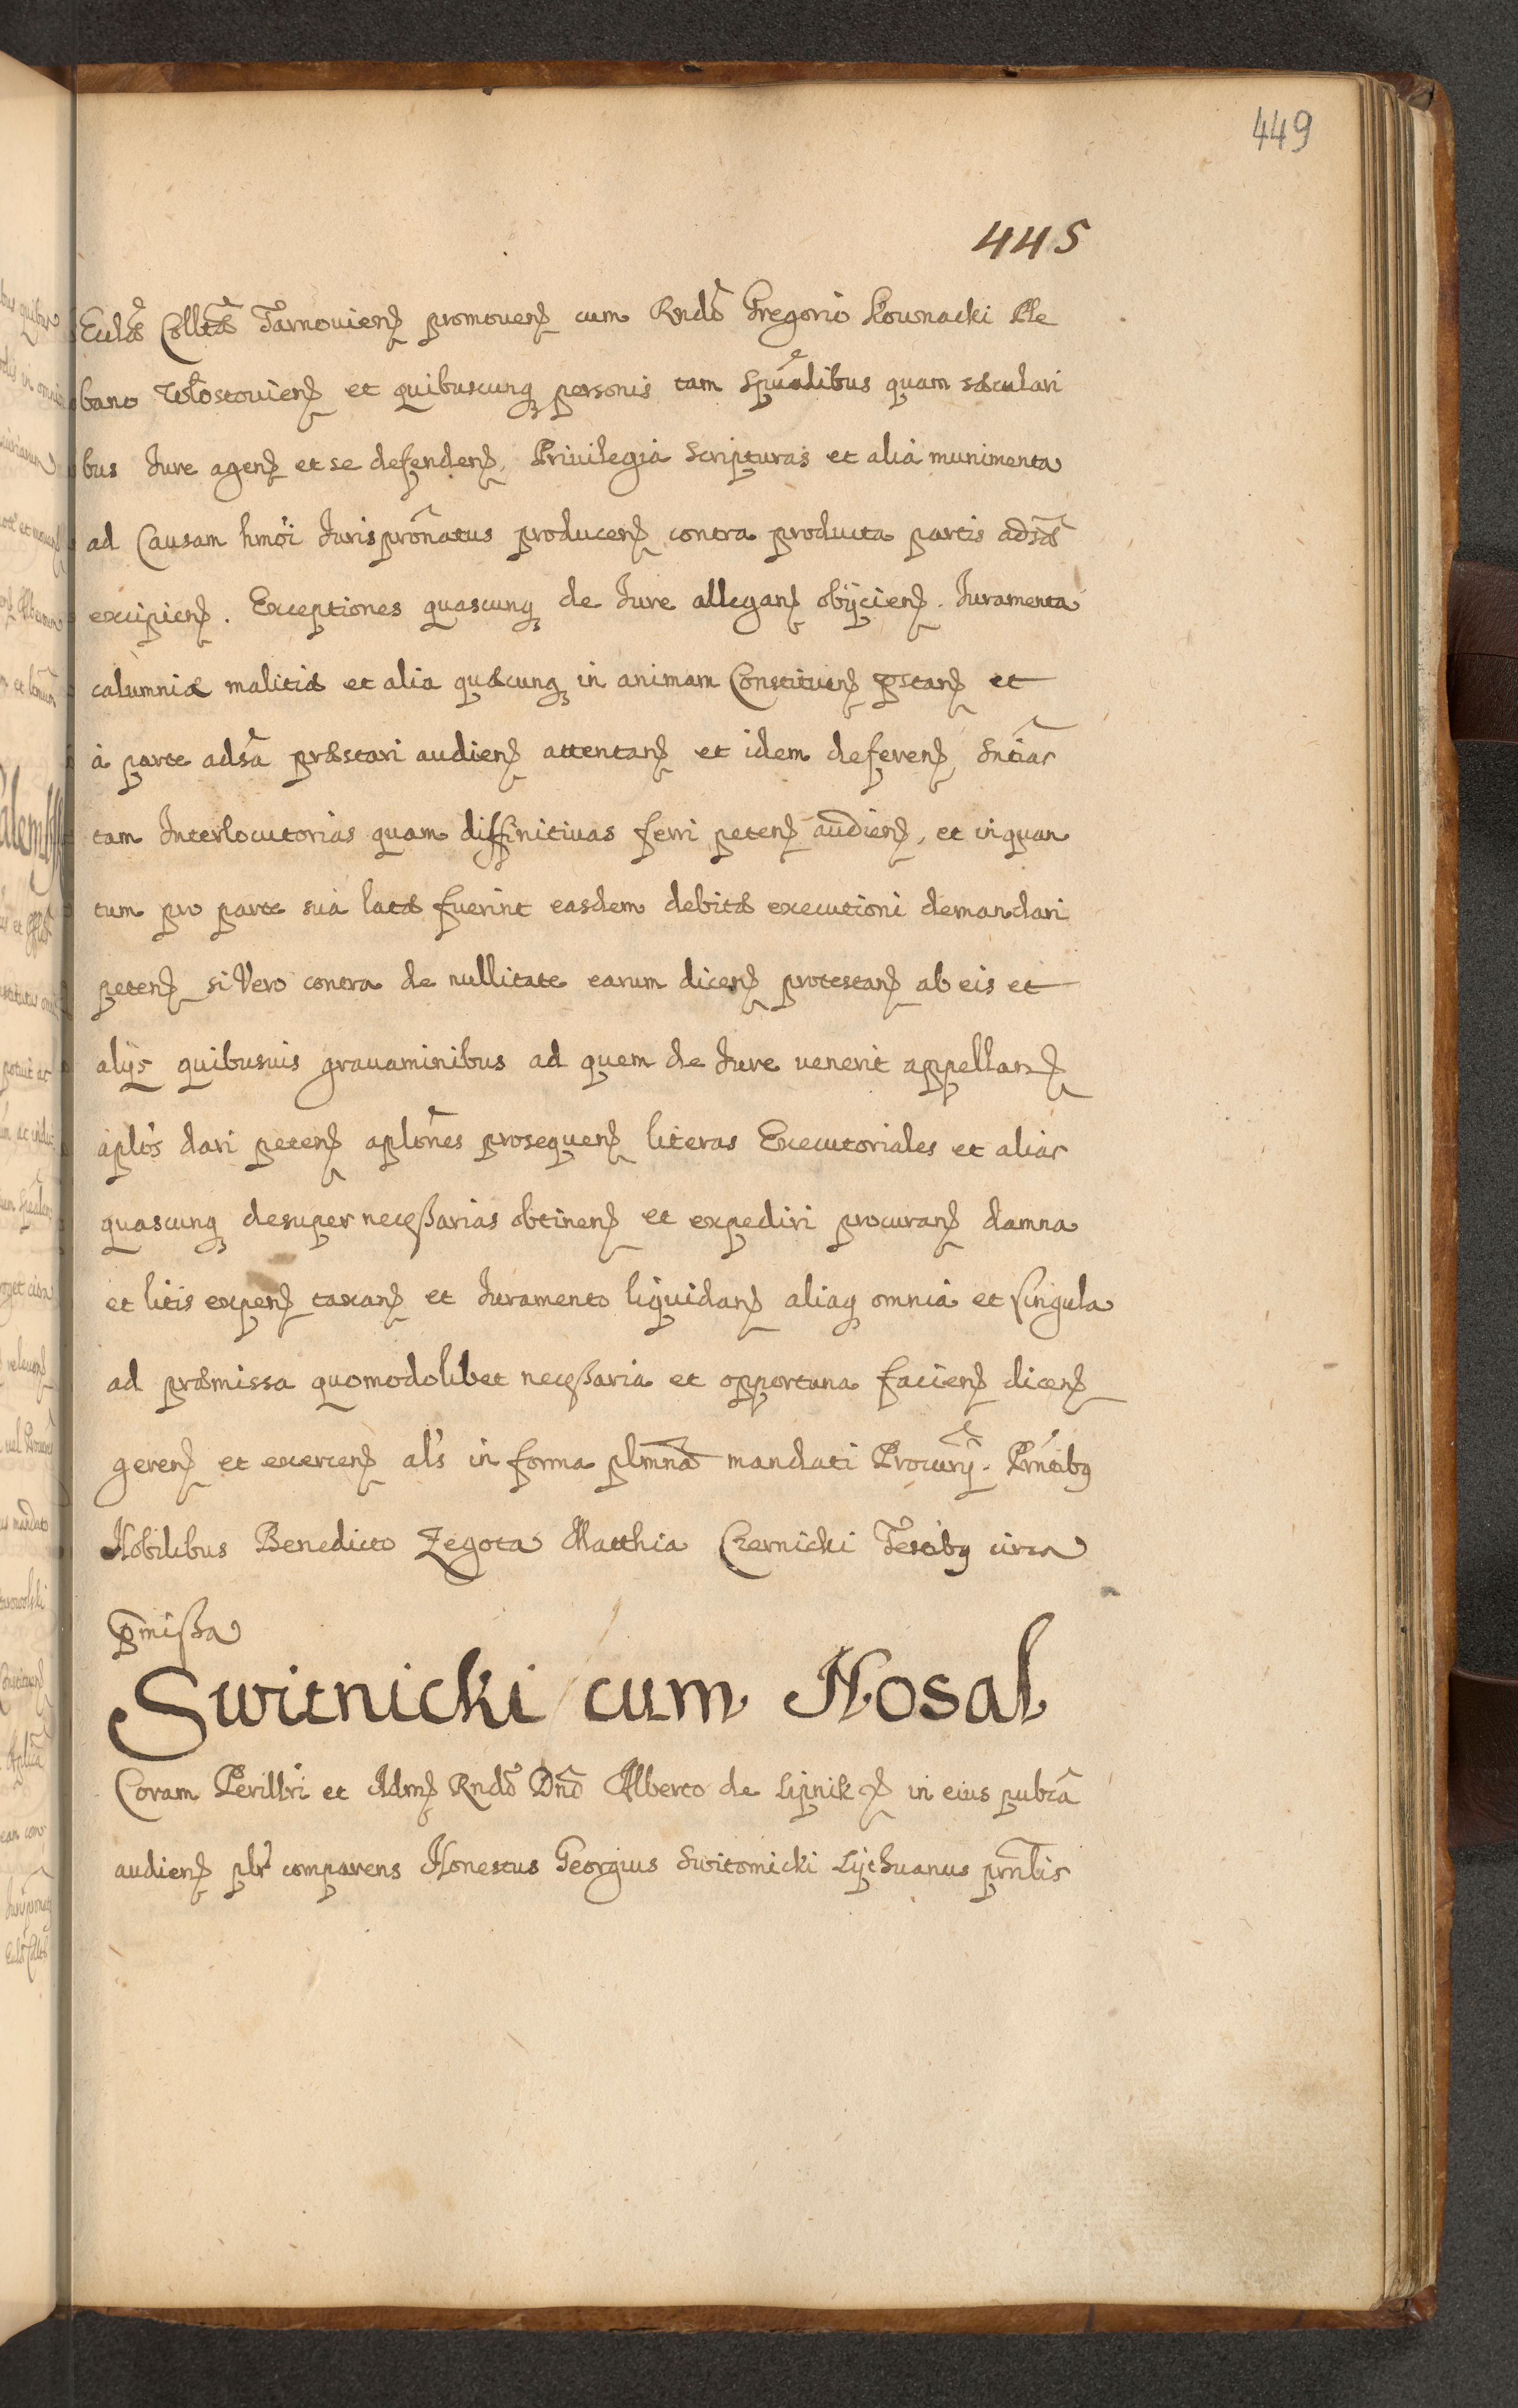 449
445
Eccläe Colltäe Tarnovien promoven cum Rndo Gregorio Kownacki Ple
bano Włostovien et quibuscunq personis tam Spualibus quam sæculari
bus Jure agen et se defenden, Privilegia Scripturas et alia munimenta
ad Causam hmoi Jurispronatus producen contra producta partis adsæ
excipien. Exceptiones quascunq de Jure allegan obijcien. Juramenta
calumniæ malitiæ et alia quæcunq in animam Constituen pstan et
à parte adsa præstari audien attentan et idem deferen, Sntias
tam Interlocutorias quam diffinitivas ferri peten audien, et inquan
tum pro parte sua latæ fuerint easdem debitæ executioni demandari
peten si Vero contra de nullitate earum dicen protestan ab eis et
alijs quibusvis gravaminibus ad quem de Jure venerit appellan
aplos dari peten aplones prosequen literas Executoriales et alias
quascunq desuper necessarias obtinen et expediri procuran damna
et litis expen taxan et Juramento liquidan aliaq omnia et singula
ad præmissa quomodolibet necessaria et opportuna facien dicen
geren et exercen als in forma plmna mandati Procurij. Pntibq
Nobilibus Benedicto Zegota Matthia Czernicki Testibq circa
pmissa
Switnicki cum Nosal
Coram Perillri et Adm Rndo Dno Alberto de Lipnik in eius pubca
audien plr comparens Honestus Georgius Switomicki Lythuanus prnlis